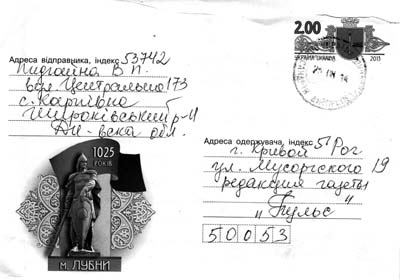 2.00
УКРАЇНА UKRAINE 2013
Адреса відправника, індекс 53742
Підгайна В П.
вул Центральна 173
с. Карпівка
Широківський р-н
Дн-вська обл.
1025
РОКІВ
м. ЛУБНИ
Адреса одержувача, індекс
г. Кривой Рог
ул. Мусоргского 19
редакция газеты
„Пульс"
50053